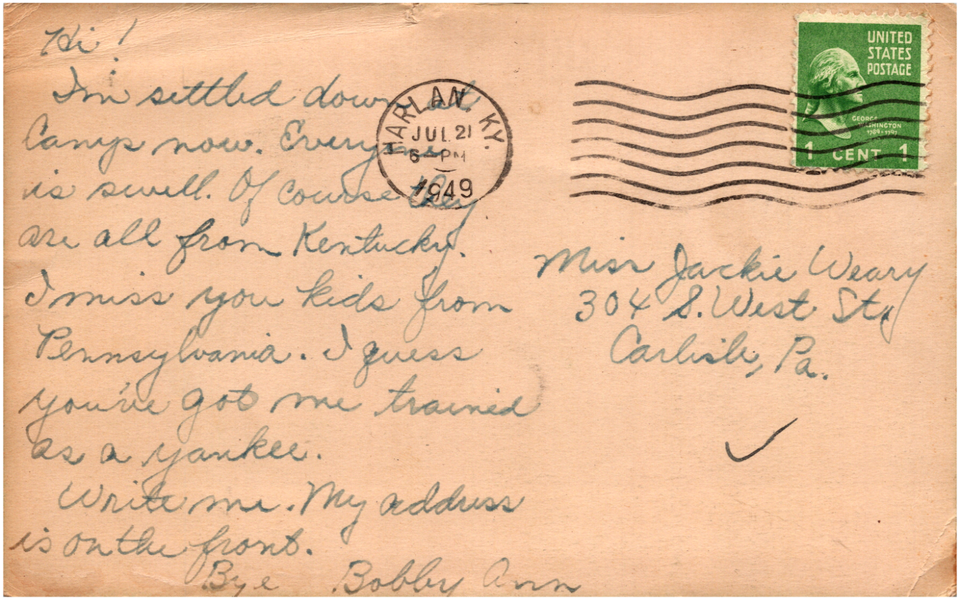 Hi!
I'm settled down at
Camp now. Everyone
is swell. Of course they
are all from Kentucky.
I miss you kids from
Pennsylvania. I guess
you've got me trained
as a yankee.
Write me. My address
is on the front.
Bye Bobby Ann
HARLAN, KY.
JUL 21
6 - PM
1949
UNITED
STATES
POSTAGE
GEORGE
WASHINGTON
1789-1797
1 CENT 1
Miss Jackie Weary
304 S. West St.
Carlisle, Pa.